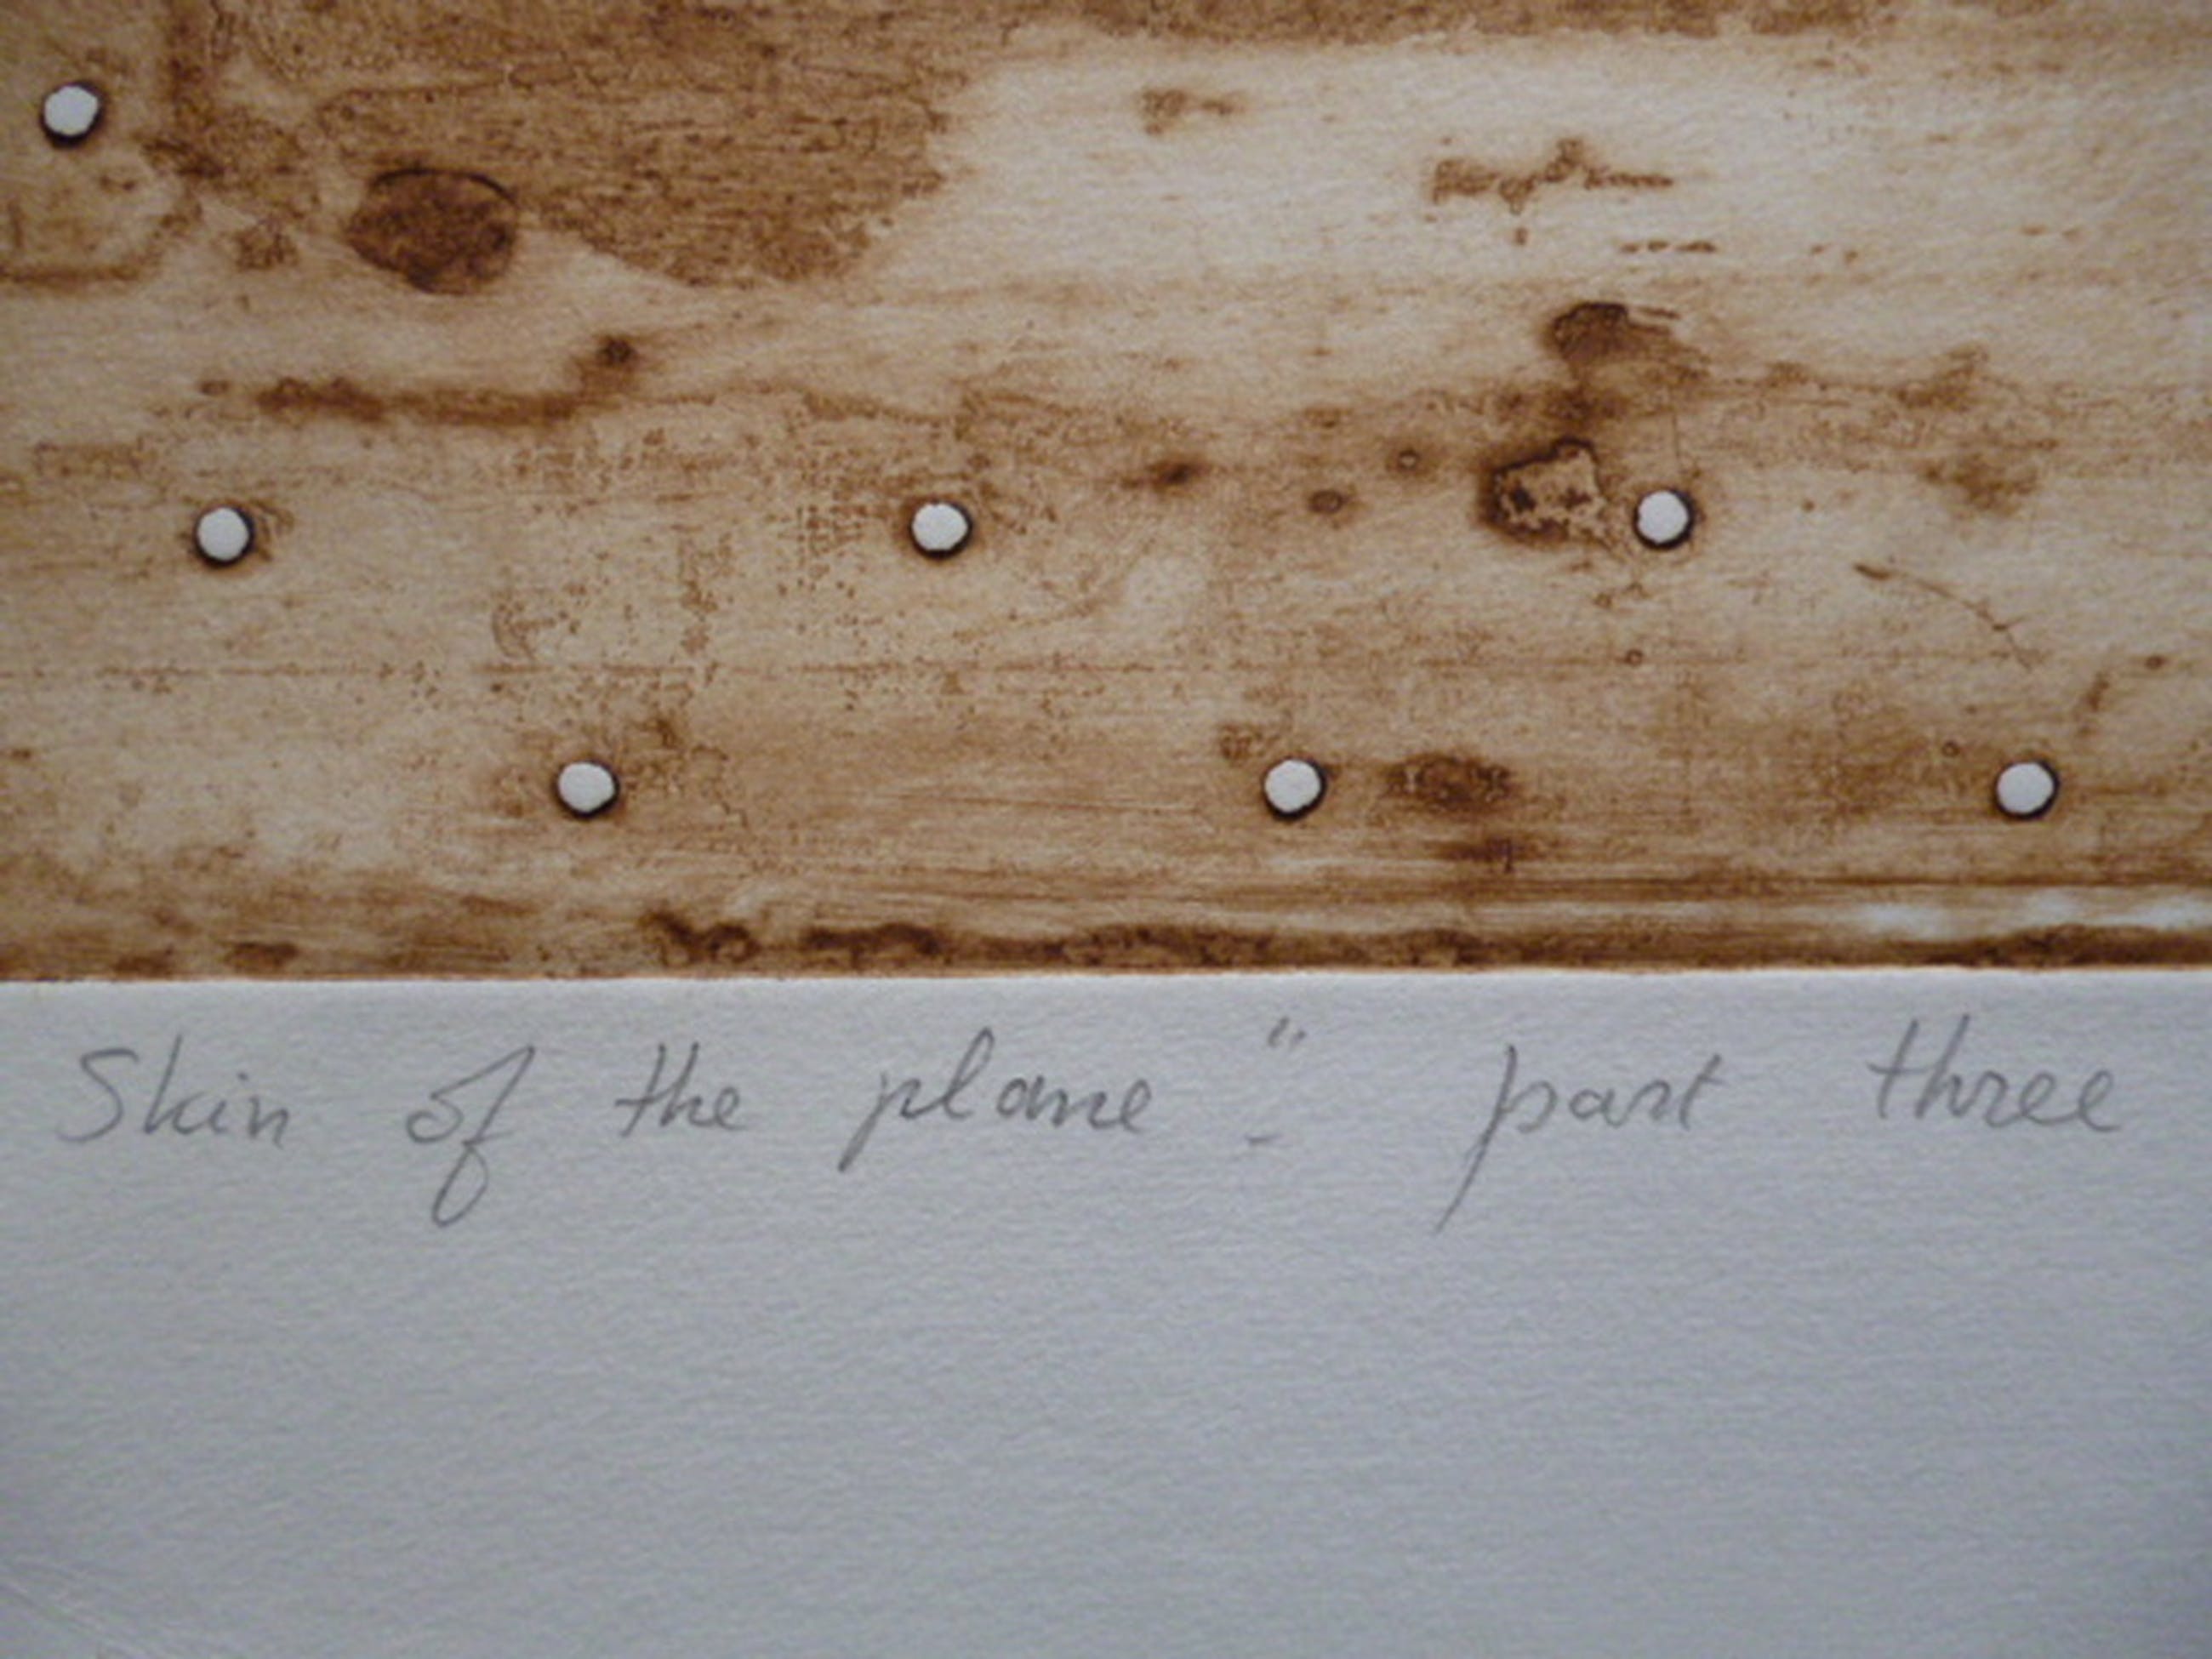 Skin of the plane" - part three